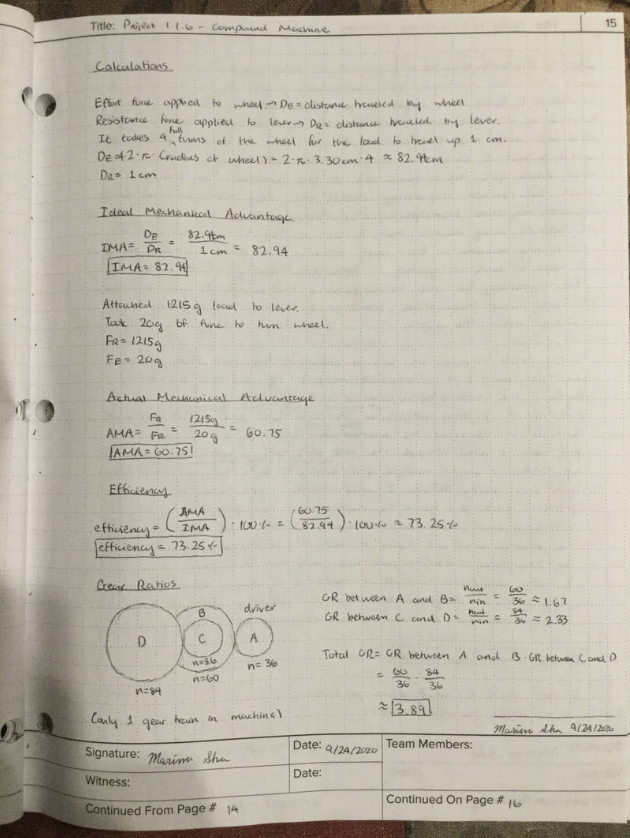 Title: Project 1.1.6 - Compound Machine
15
Calculations
Effort force applied to wheel → DE = distance traveled by wheel
Resistance force applied to lever → DR = distance traveled by lever.
It takes 4 full turns of the wheel for the load to travel up 1 cm.
DE = 4·2·π·(radius of wheel) = 2·π·3.30cm·4 ≈ 82.94cm
DR = 1cm
Ideal Mechanical Advantage
IMA = DE/DR = 82.94cm/1cm = 82.94
IMA = 82.94
Attached 1215g load to lever.
Took 20g of force to turn wheel.
FR = 1215g
FE = 20g
Actual Mechanical Advantage
AMA = FR/FE = 1215g/20g = 60.75
AMA = 60.75
Efficiency
efficiency = (AMA/IMA)·100% = (60.75/82.94)·100% ≈ 73.25%
efficiency = 73.25%
Gear Ratios
driver
D
B
C
A
n=36
n=60
n=36
n=84
(only 1 gear train in machine)
GR between A and B = nout/nin = 60/36 ≈ 1.67
GR between C and D = nout/nin = 84/36 ≈ 2.33
Total GR = GR between A and B · GR between C and D
= 60/36 · 84/36
≈ 3.89
9/24/2020
Signature:
Date: 9/24/2020
Team Members:
Witness:
Date:
Continued From Page # 14
Continued On Page # 16